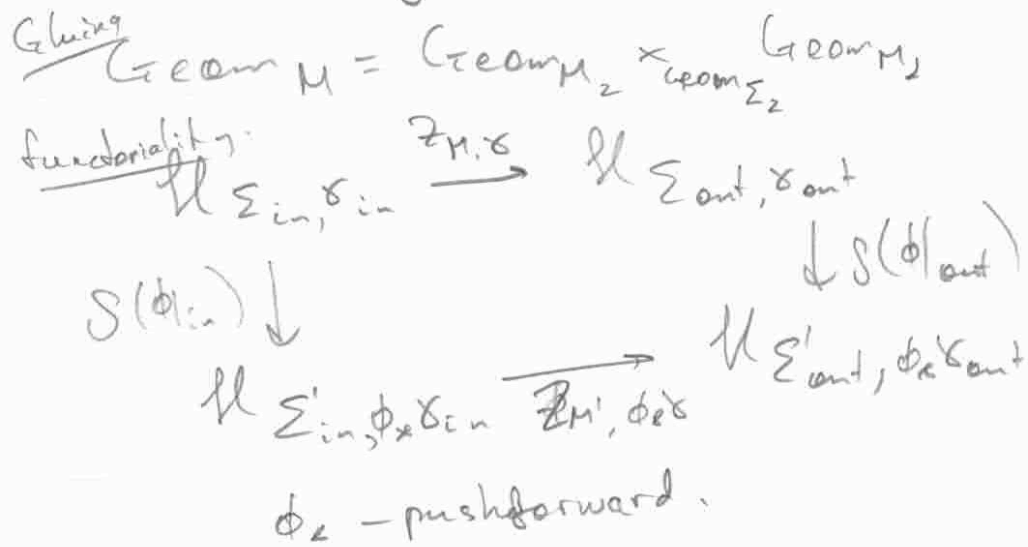 Gluing
Geom_M = Geom_{M_2} ×_{Geom_{Σ_2}} Geom_{M_1}
functoriality:
H_{Σ_in, γ_in} →^{Z_{M,γ}} H_{Σ_out, γ_out}
ρ(ϕ|_in) ↓ ↓ ρ(ϕ|_out)
H_{Σ'_in, ϕ_*γ_in} →_{Z_{M', ϕ_*γ}} H_{Σ'_out, ϕ_*γ_out}
ϕ_* - pushforward.